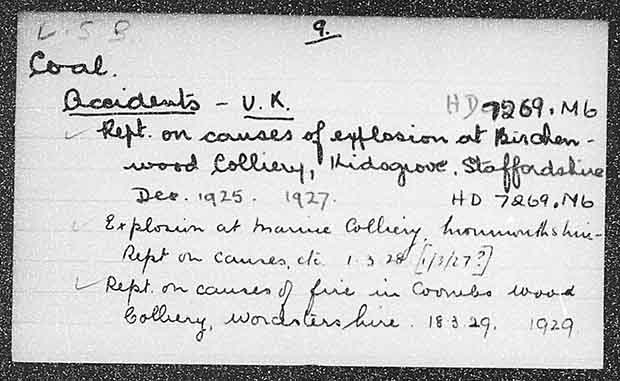 L.S.B. 9.
Coal.
Accidents - U.K. HD 7269.M6
Rept. on causes of explosion at Birchen-
wood Colliery, Kidsgrove, Staffordshire
Dec. 1925. 1927. HD 7269.M6
Explosion at Marine Colliery, Monmouthshire-
Rept on causes, etc. 1.3.28 [1/3/27?]
Rept. on causes of fire in Coombs Wood
Colliery, Worcestershire. 18.3.29. 1929.